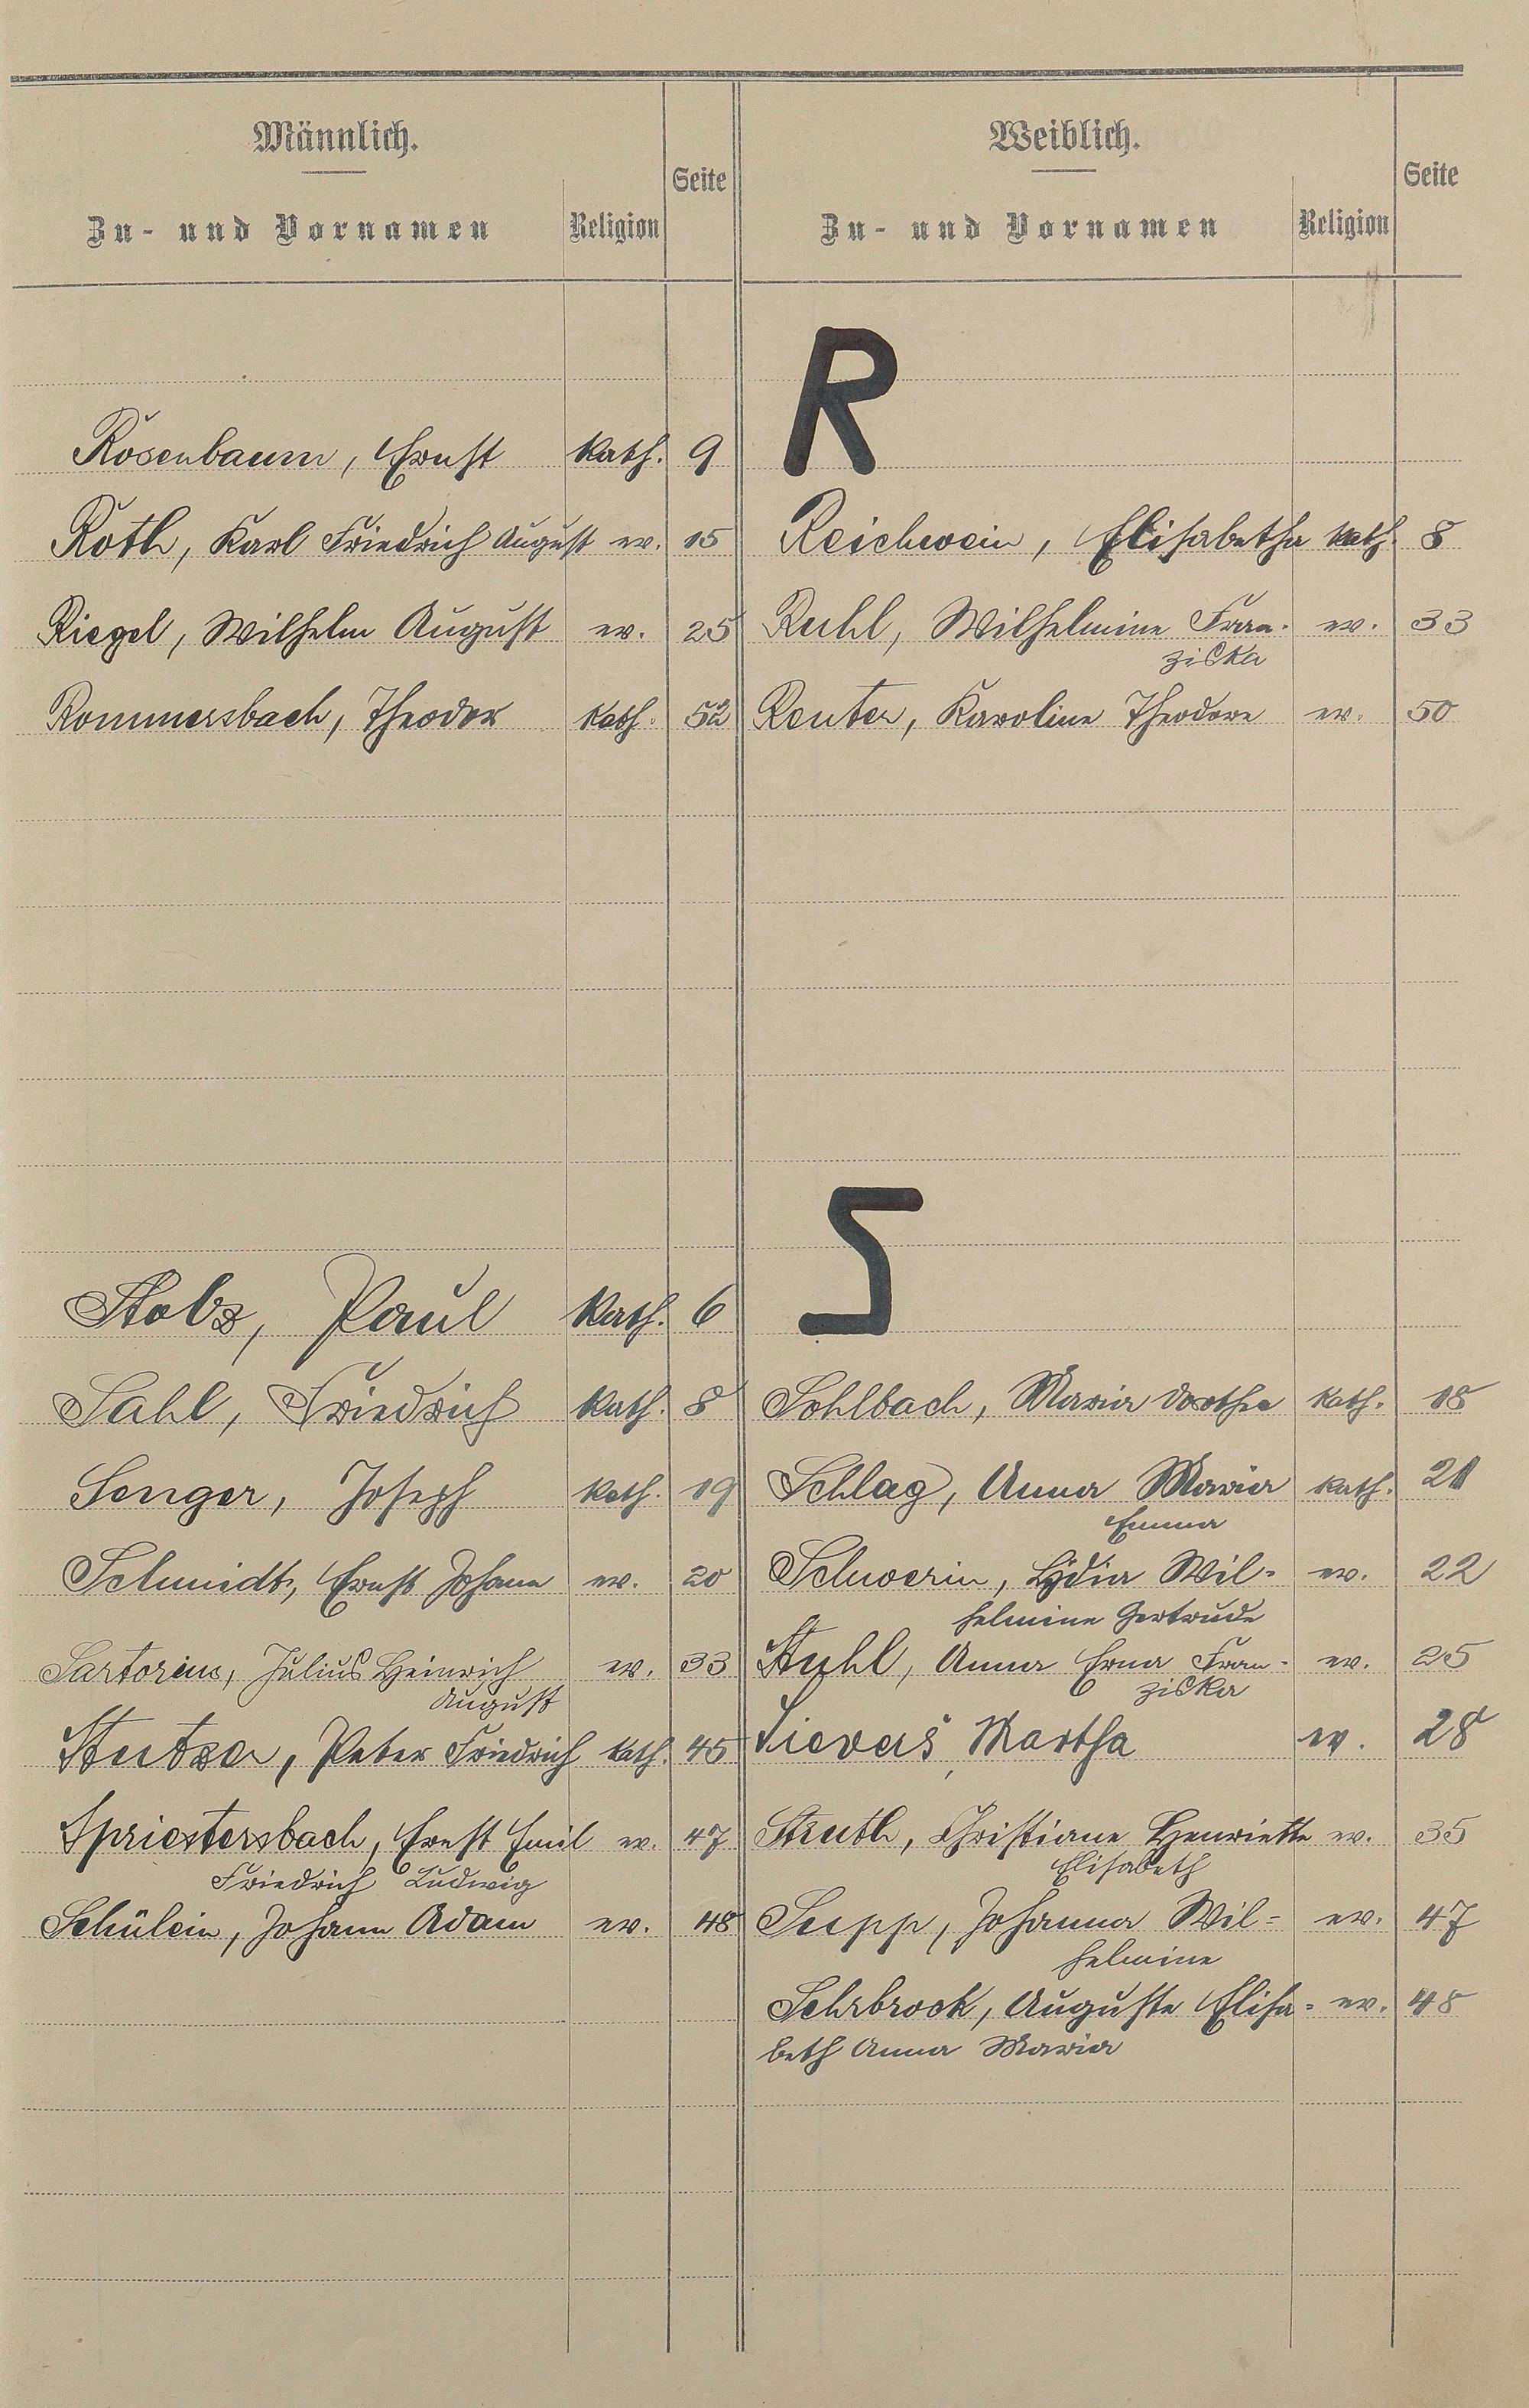 Männlich.
Zu- und Vornamen Religion Seite
Rosenbaum, Ernst kath. 9
Roth, Karl Friedrich August ev. 15
Riegel, Wilhelm August ev. 25
Rommersbach, Theodor kath. 52
Stolz, Paul kath. 6
Sahl, Friedrich kath. 8
Senger, Joseph kath. 19
Schmidt, Ernst Johann ev. 20
Sartorius, Julius Heinrich ev. 33
August
Peter Friedrich kath. 45
Spriestersbach, Ernst Emil ev. 47
Friedrich Ludwig
Schülein, Johann Adam ev. 48
Weiblich.
Zu- und Vornamen Religion Seite
R
Reichwein, Elisabetha kath. 8
Ruhl, Wilhelmine Fran- ev. 33
ziska
Reuter, Karoline Theodore ev. 50
S
Sohlbach, Maria Dorothea kath. 18
Schlag, Anna Maria kath. 21
Emma
Schwerin, Lydia Wil- ev. 22
helmine Gertrude
Stuhl, Anna Erna Fran- ev. 25
ziska
Sievers, Martha ev. 28
Struth, Christiane Henriette ev. 35
Elisabeth
Supp, Johanna Wil= ev. 47
helmine
Sehrbrock, Auguste Elisa= ev. 48
beth Anna Maria